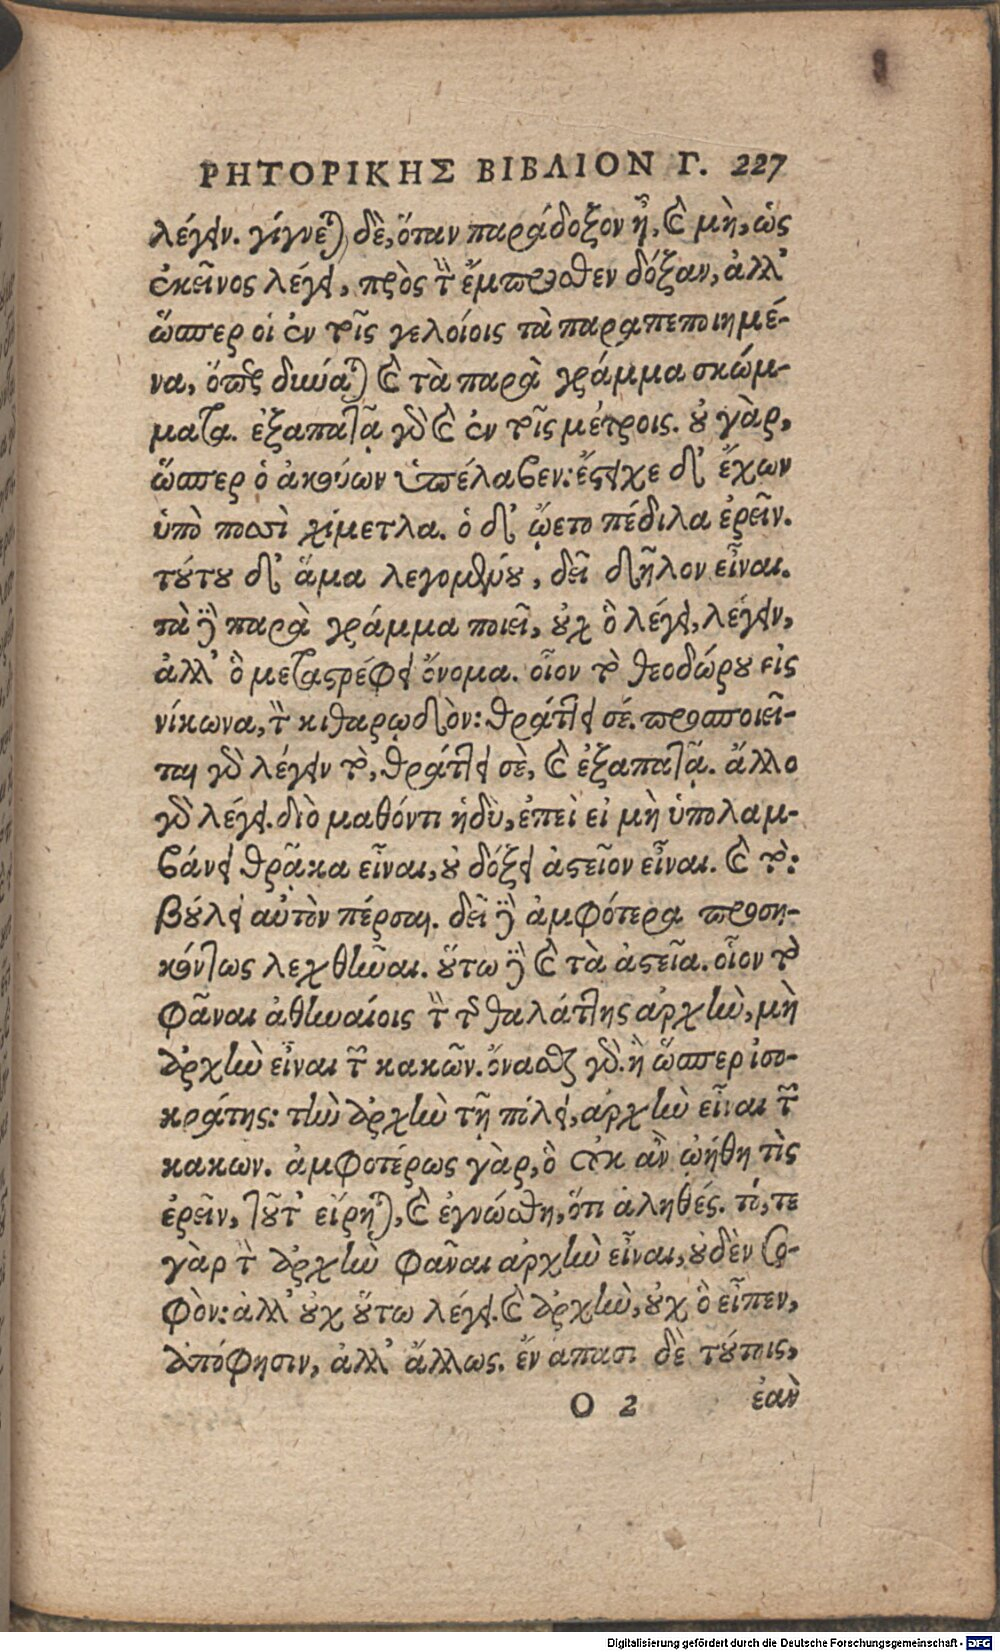 ΡΗΤΟΡΙΚΗΣ ΒΙΒΛΙΟΝ Γ. 227
λέγειν. γίγνεται δὲ, ὅταν παράδοξον ᾖ, καὶ μὴ, ὡς
ἐκεῖνος λέγει, πρὸς τὴν ἔμπροσθεν δόξαν, ἀλλ'
ὥσπερ οἱ ἐν τοῖς γελοίοις τὰ παραπεποιημέ-
να, ὅπερ δύναται καὶ τὰ παρὰ γράμμα σκώμ-
ματα. ἐξαπατᾷ γὰρ καὶ ἐν τοῖς μέτροις. οὐ γὰρ,
ὥσπερ ὁ ἀκούων ὑπέλαβεν: ἔστιχε δ' ἔχων
ὑπὸ ποσὶ χίμετλα. ὁ δ' ᾤετο πέδιλα ἐρεῖν.
τούτου δ' ἅμα λεγομένου, δεῖ δῆλον εἶναι.
τὰ δὲ παρὰ γράμμα ποιεῖ, οὐχ ὃ λέγει, λέγειν,
ἀλλ' ὃ μεταστρέφει ὄνομα. οἷον τὸ θεοδώρου εἰς
νίκωνα, τὸν κιθαρῳδὸν: θράττει σέ. προσποιεῖ-
ται γὰρ λέγειν τὸ, θράττει σὲ, καὶ ἐξαπατᾷ. ἄλλο
γὰρ λέγει. διὸ μαθόντι ἡδὺ, ἐπεὶ εἰ μὴ ὑπολαμ-
βάνει θρᾷκα εἶναι, οὐ δόξει ἀστεῖον εἶναι. καὶ τὸ:
βούλει αὐτὸν πέρσαι. δεῖ δὲ ἀμφότερα προση-
κόντως λεχθῆναι. οὕτω δὲ καὶ τὰ ἀστεῖα. οἷον τὸ
φᾶναι ἀθηναίοις τὴν τῆς θαλάττης ἀρχὴν, μὴ
ἀρχὴν εἶναι τῶν κακῶν. ὄνασθαι γὰρ. ἢ ὥσπερ ἰσο-
κράτης: τὴν ἀρχὴν τῇ πόλει, ἀρχὴν εἶναι τῶν
κακων. ἀμφοτέρως γὰρ, ὃ οὐκ ἂν ᾠήθη τὶς
ἐρεῖν, τοῦτ' εἴρηται, καὶ ἐγνώσθη, ὅτι ἀληθές. τό, τε
γὰρ τὴν ἀρχὴν φᾶναι ἀρχὴν εἶναι, οὐδὲν σο-
φὸν: ἀλλ' οὐχ οὕτω λέγει. καὶ ἀρχὴν, οὐχ ὃ εἶπεν,
ἀπόφησιν, ἀλλ' ἄλλως. ἔν ἁπασι δὲ τούτοις,
O 2 ἐὰν
Digitalisierung gefördert durch die Deutsche Forschungsgemeinschaft - DFG